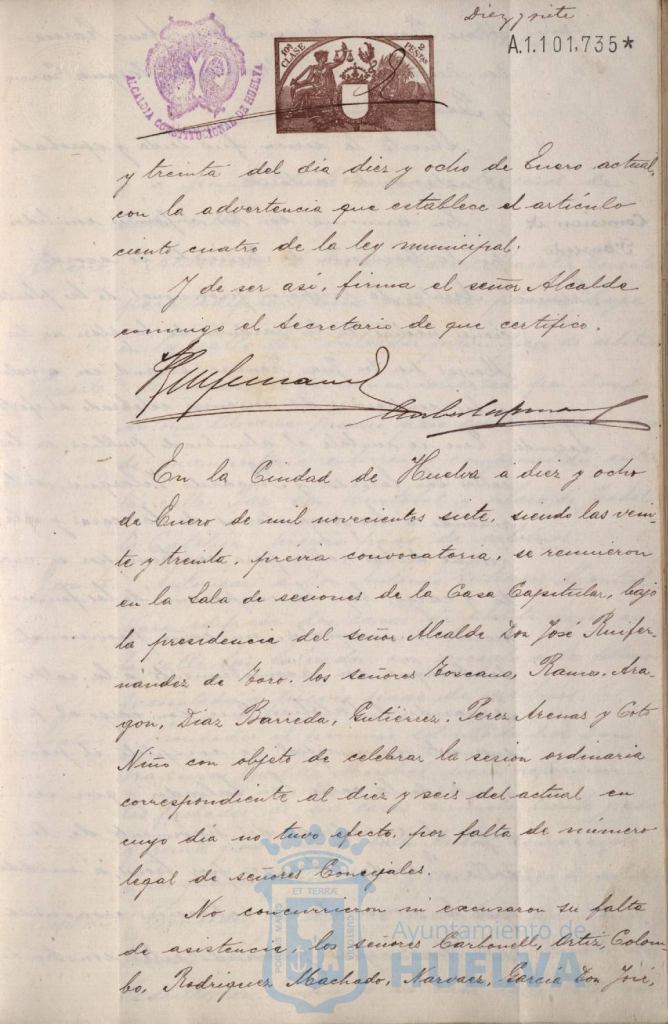 Diez y siete
A.1.101,735*
ALCALDIA CONSTITUCIONAL DE HUELVA
10ª CLASE
2 PESTAS
y treinta del dia diez y ocho de Enero actual,
con la advertencia que establece el artículo
ciento cuatro de la ley municipal.
Y de ser así, firma el señor Alcalde
conmigo el Secretario de que certifico.
En la Ciudad de Huelva á diez y ocho
de Enero de mil novecientos siete, siendo las vein-
te y treinta, prévia convocatoria, se reunieron
en la Sala de sesiones de la Casa Capitular, bajo
la presidencia del señor Alcalde Don José Ruifer-
nández de Toro, los señores Toscano, Ramos, Ara-
gon, Diaz Barreda, Gutiérrez, Perez Arenas y Coto
Niño con objeto de celebrar la sesion ordinaria
correspondiente al diez y seis del actual en
cuyo día no tuvo efecto, por falta de número
legal de señores Concejales.
No concurrieron ni excusaron su falta
de asistencia, los señores Carbonell, Ortiz, Colom-
bo, Rodriguez Machado, Narvaez, García Don José,
ET TERRÆ
PORTUS MARIS
CUSTODIA
Ayuntamiento de
HUELVA